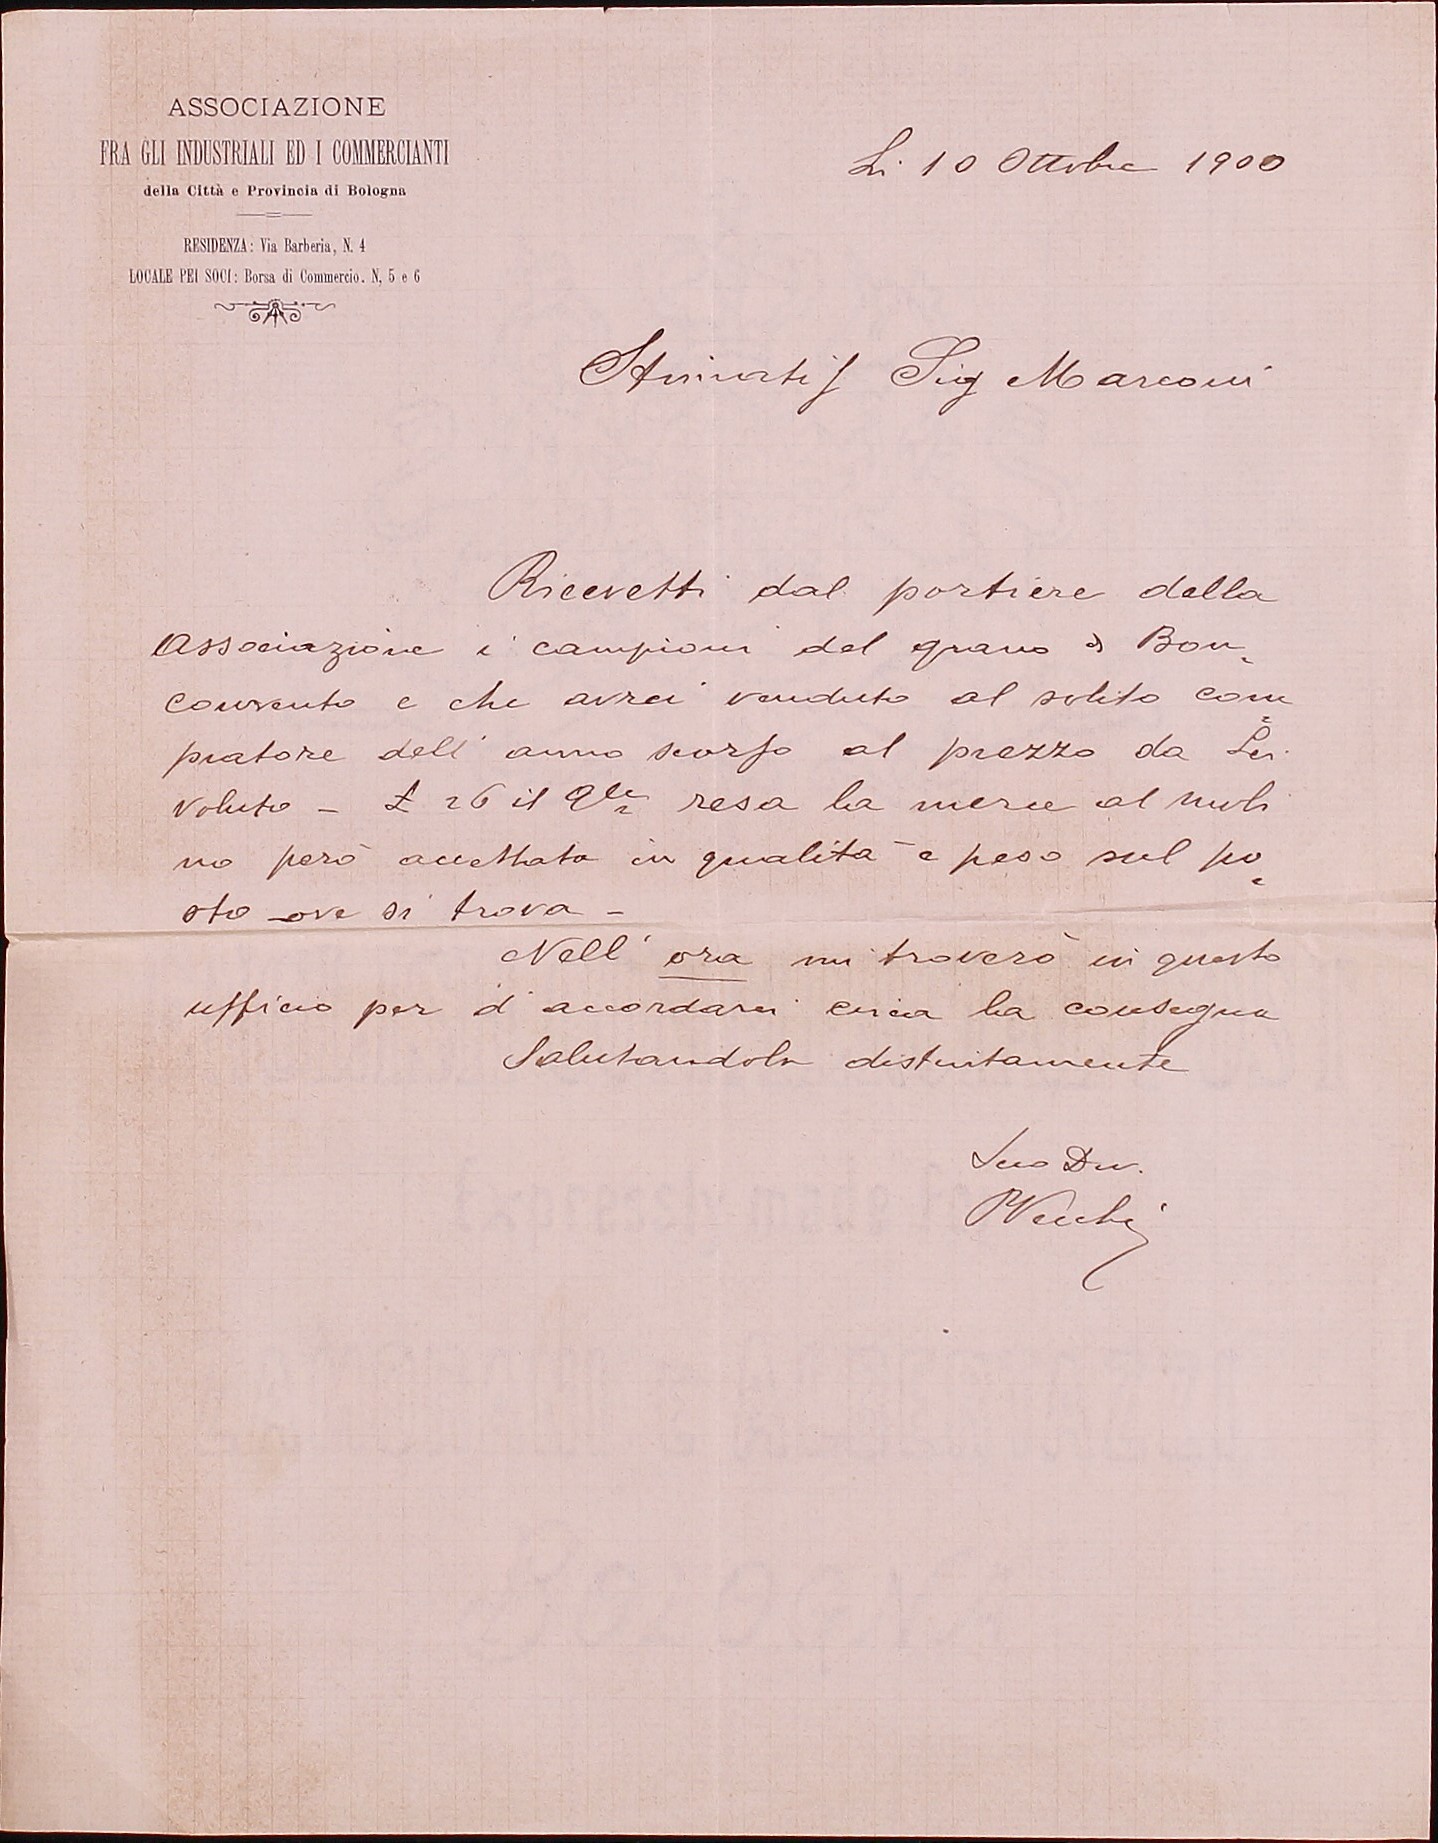 ASSOCIAZIONE
FRA GLI INDUSTRIALI ED I COMMERCIANTI
della Città e Provincia di Bologna
RESIDENZA: Via Barberia, N. 4
LOCALE PEI SOCI: Borsa di Commercio. N, 5 e 6
Li 10 Ottobre 1900
Stimatis Sig Marconi
Ricevetti dal portiere della
Associazione i campioni del grano di Bon-
convento e che avrei venduto al solito com
pratore dell' anno scorso al prezzo da Lei
voluto - £ 26 il Qle resa la merce al muli
no però accettata in qualità e peso sul po-
sto ove si trova -
Nell' ora mi troverò in questo
ufficio per d'accordarci circa la consegna
Salutandola distintamente
Suo Dev.
Vecchi